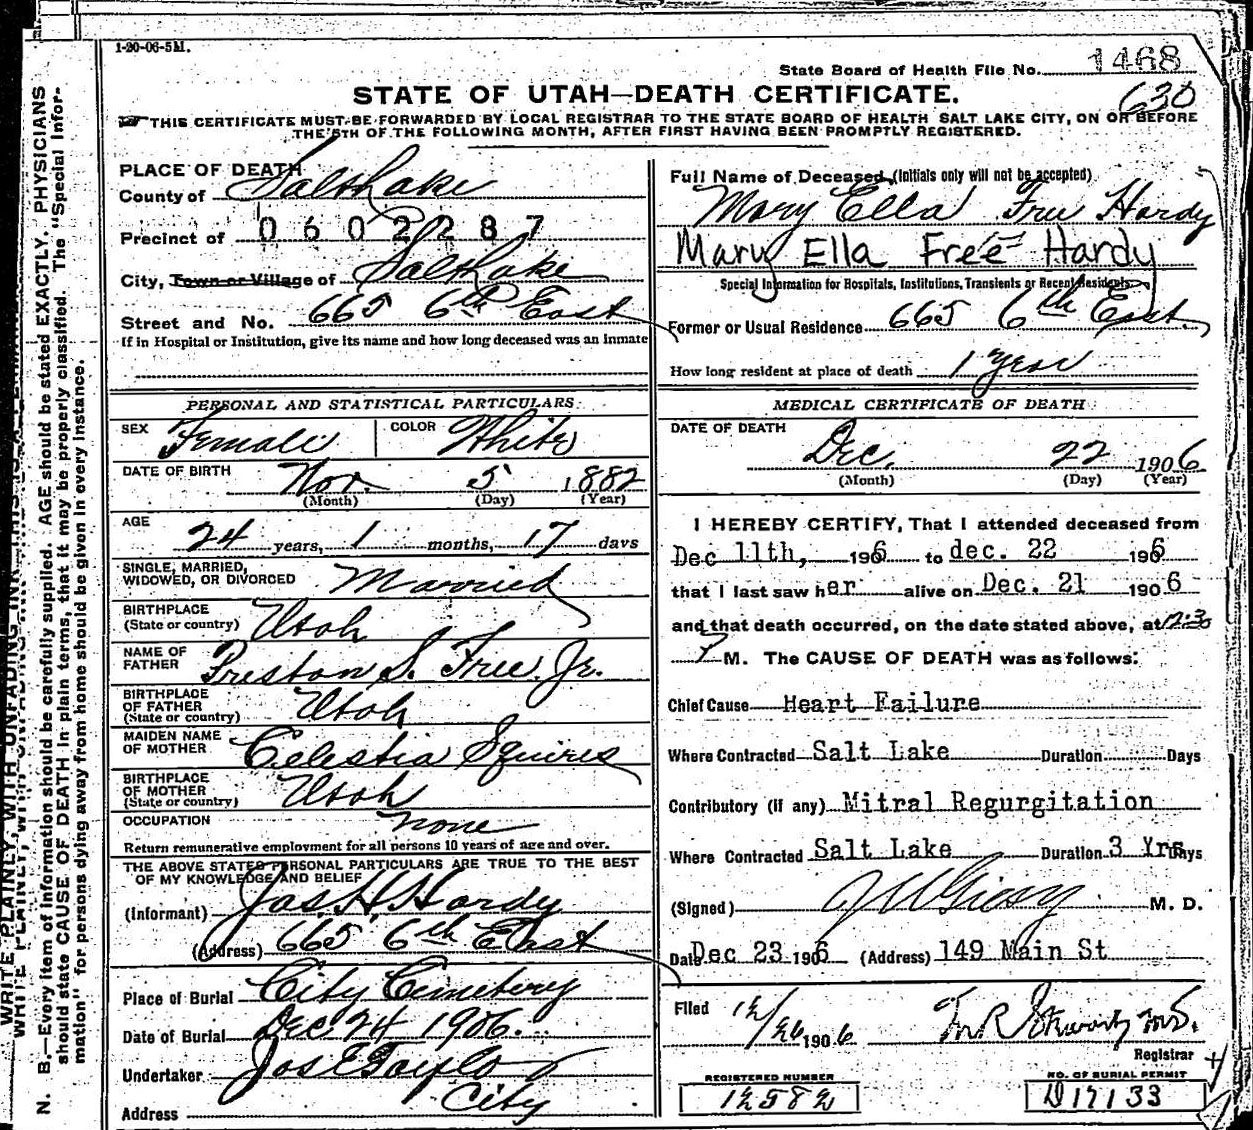 1-20-06-5M.
State Board of Health File No. 1468
STATE OF UTAH—DEATH CERTIFICATE.
630
THIS CERTIFICATE MUST BE FORWARDED BY LOCAL REGISTRAR TO THE STATE BOARD OF HEALTH SALT LAKE CITY, ON OR BEFORE
THE 5TH OF THE FOLLOWING MONTH, AFTER FIRST HAVING BEEN PROMPTLY REGISTERED.
PLACE OF DEATH
County of Salt Lake
Precinct of 0602287
City, Town or Village of Salt Lake
Street and No. 665 6th East
If in Hospital or Institution, give its name and how long deceased was an inmate
PERSONAL AND STATISTICAL PARTICULARS
SEX Female COLOR White
DATE OF BIRTH Nov. 5 1882
(Month) (Day) (Year)
AGE 24 years, 1 months, 17 days
SINGLE, MARRIED,
WIDOWED, OR DIVORCED Married
BIRTHPLACE
(State or country) Utah
NAME OF
FATHER Preston S. Free Jr.
BIRTHPLACE
OF FATHER
(State or country) Utah
MAIDEN NAME
OF MOTHER Celestia Squires
BIRTHPLACE
OF MOTHER
(State or country) Utah
OCCUPATION none
Return remunerative employment for all persons 10 years of age and over.
THE ABOVE STATED PERSONAL PARTICULARS ARE TRUE TO THE BEST
OF MY KNOWLEDGE AND BELIEF
(Informant) Jas. H. Hardy
(Address) 665 6th East
Place of Burial City Cemetery
Date of Burial Dec 24 1906.
Undertaker Jos E Taylor
Address City
Full Name of Deceased, (Initials only will not be accepted)
Mary Ella Free Hardy
Mary Ella Free Hardy
Special Information for Hospitals, Institutions, Transients or Recent Residents
Former or Usual Residence 665 6th East.
How long resident at place of death 1 year
MEDICAL CERTIFICATE OF DEATH
DATE OF DEATH
Dec. 22 1906
(Month) (Day) (Year)
I HEREBY CERTIFY, That I attended deceased from
Dec 11th, 1906 to dec. 22 1906
that I last saw her alive on Dec. 21 1906
and that death occurred, on the date stated above, at 12:30
P M. The CAUSE OF DEATH was as follows:
Chief Cause Heart Failure
Where Contracted Salt Lake Duration Days
Contributory (if any) Mitral Regurgitation
Where Contracted Salt Lake Duration 3 Yrs Days
(Signed) M. D.
Date Dec 23 1906 (Address) 149 Main St
Filed 12/26 1906
Registrar
REGISTERED NUMBER
12582
NO. OF BURIAL PERMIT
D17133
N. B.—Every item of information should be carefully supplied. AGE should be stated EXACTLY. PHYSICIANS
should state CAUSE OF DEATH in plain terms, that it may be properly classified. The "Special Infor-
mation" for persons dying away from home should be given in every instance.
WRITE PLAINLY, WITH UNFADING INK